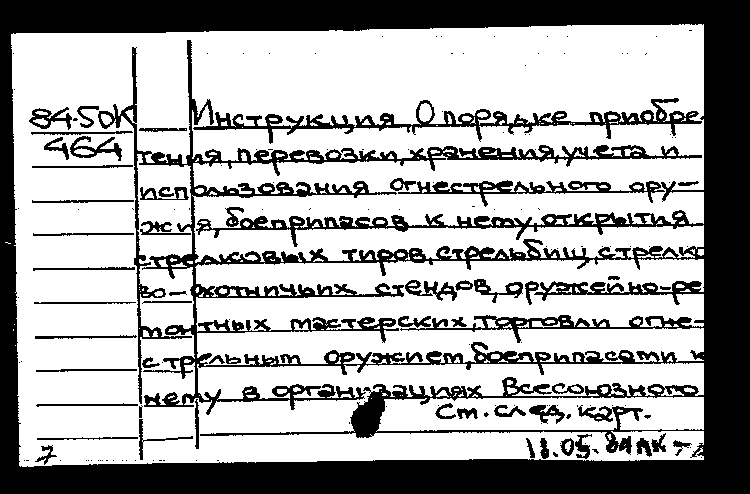 84-50К Инструкция „О порядке приобре-
464 тения, перевозки, хранения, учета и
использования огнестрельного ору-
жия, боеприпасов к нему, открытия
стрелковых тиров, стрельбищ, стрелко
во-охотничьих стендов, оружейно-ре
монтных мастерских, торговли огне-
стрельным оружием, боеприпасами к
нему в организациях Всесоюзного
См. след. карт.
7 18.05.84